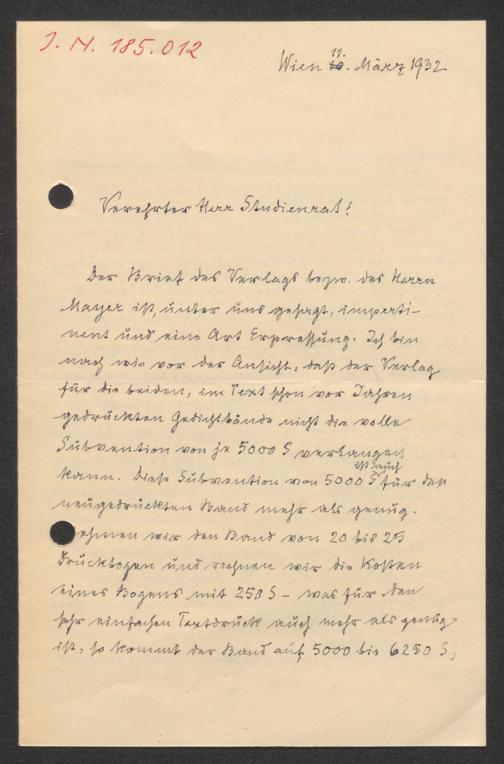 J. N. 185.012
Wien 11. März 1932
Verehrter Herr Studienrat!
Der Brief des Verlags bezw. des Herrn
Mayer ist, unter uns gesagt, imperti-
nent und eine Art Erpressung. Ich bin
nach wie vor der Ansicht, daß der Verlag
für die beiden, im Text schon vor Jahren
gedruckten Gedichtbände nicht die volle
Subvention von je 5000 S verlangen
kann. Diese Subvention von 5000 S ist auch für den
neugedruckten Band mehr als genug.
Nehmen wir den Band von 20 bis 25
Druckbogen und rechnen wir die Kosten
eines Bogens mit 250 S – was für den
sehr einfachen Textdruck auch mehr als genug
ist, so kommt der Band auf 5000 bis 6250 S,